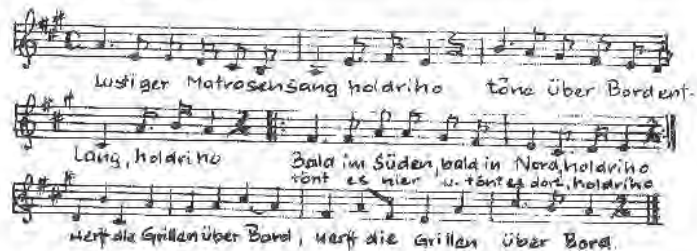 Lustiger Matrosensang holdriho töne über Bord ent-
lang, holdriho Bald im Süden, bald in Nord, holdriho
tönt es hier u. tönt es dort, holdriho
Werft die Grillen über Bord, werft die Grillen über Bord.